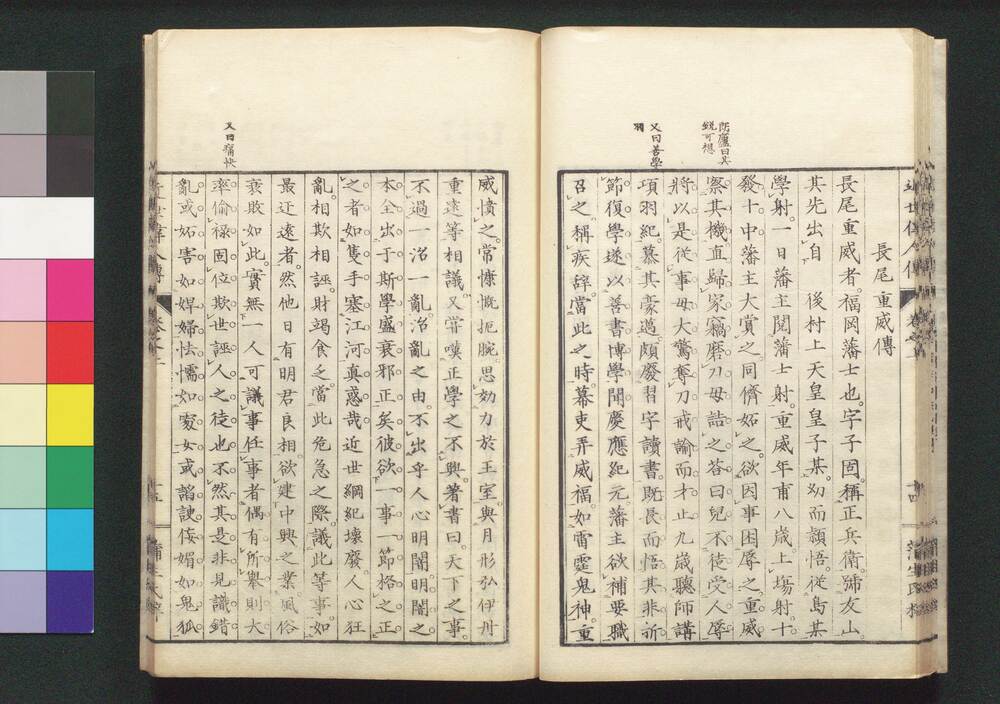 長尾重威傳
長尾重威者。福岡藩士也。字子固。稱正兵衛。號友山。
其先出自　後村上天皇皇子某。幼而穎悟。從島某
學射。一日藩主閱藩士射。重威年甫八歲上塲射十
發十中藩主大賞之同儕妬之。欲因事困辱之重威
察其機直歸家竊磨刀母詰之答曰兒不徒受人辱
將以是從事母大驚奪刀戒諭而才止九歲聽師講
項羽紀。慕其豪邁。頗廢習字讀書。既長而悟其非折
節復學遂以善書博學聞慶應紀元藩主欲補要職
召之。稱疾辭。當此之時幕吏弄威福。如雷霆鬼神。重
威憤之。常慷慨扼腕。思効力於王室與月形弘伊丹
重遠等相議。又嘗嘆正學之不興。著書曰。天下之事。
不過一治一亂治亂之由。不出乎人心明闇明闇之
本全出于斯學盛衰邪正矣彼欲一事一節格之正
之者如隻手塞江河真惑哉近世綱紀壞廢人心狂
亂。相欺相誣。財竭食乏。當此危急之際。議此等事。如
最迂遠者。然他日有明君良相。欲建中興之業。風俗
衰敗如此。實無一人可議事任事者偶有所舉則大
率偷祿固位欺世誣人之徒也不然其是非見識錯
亂。或妬害如婢婦怯懦如處女或諂諛侫媚如鬼狐
又曰善學
羽
又曰痛快
蒲生氏